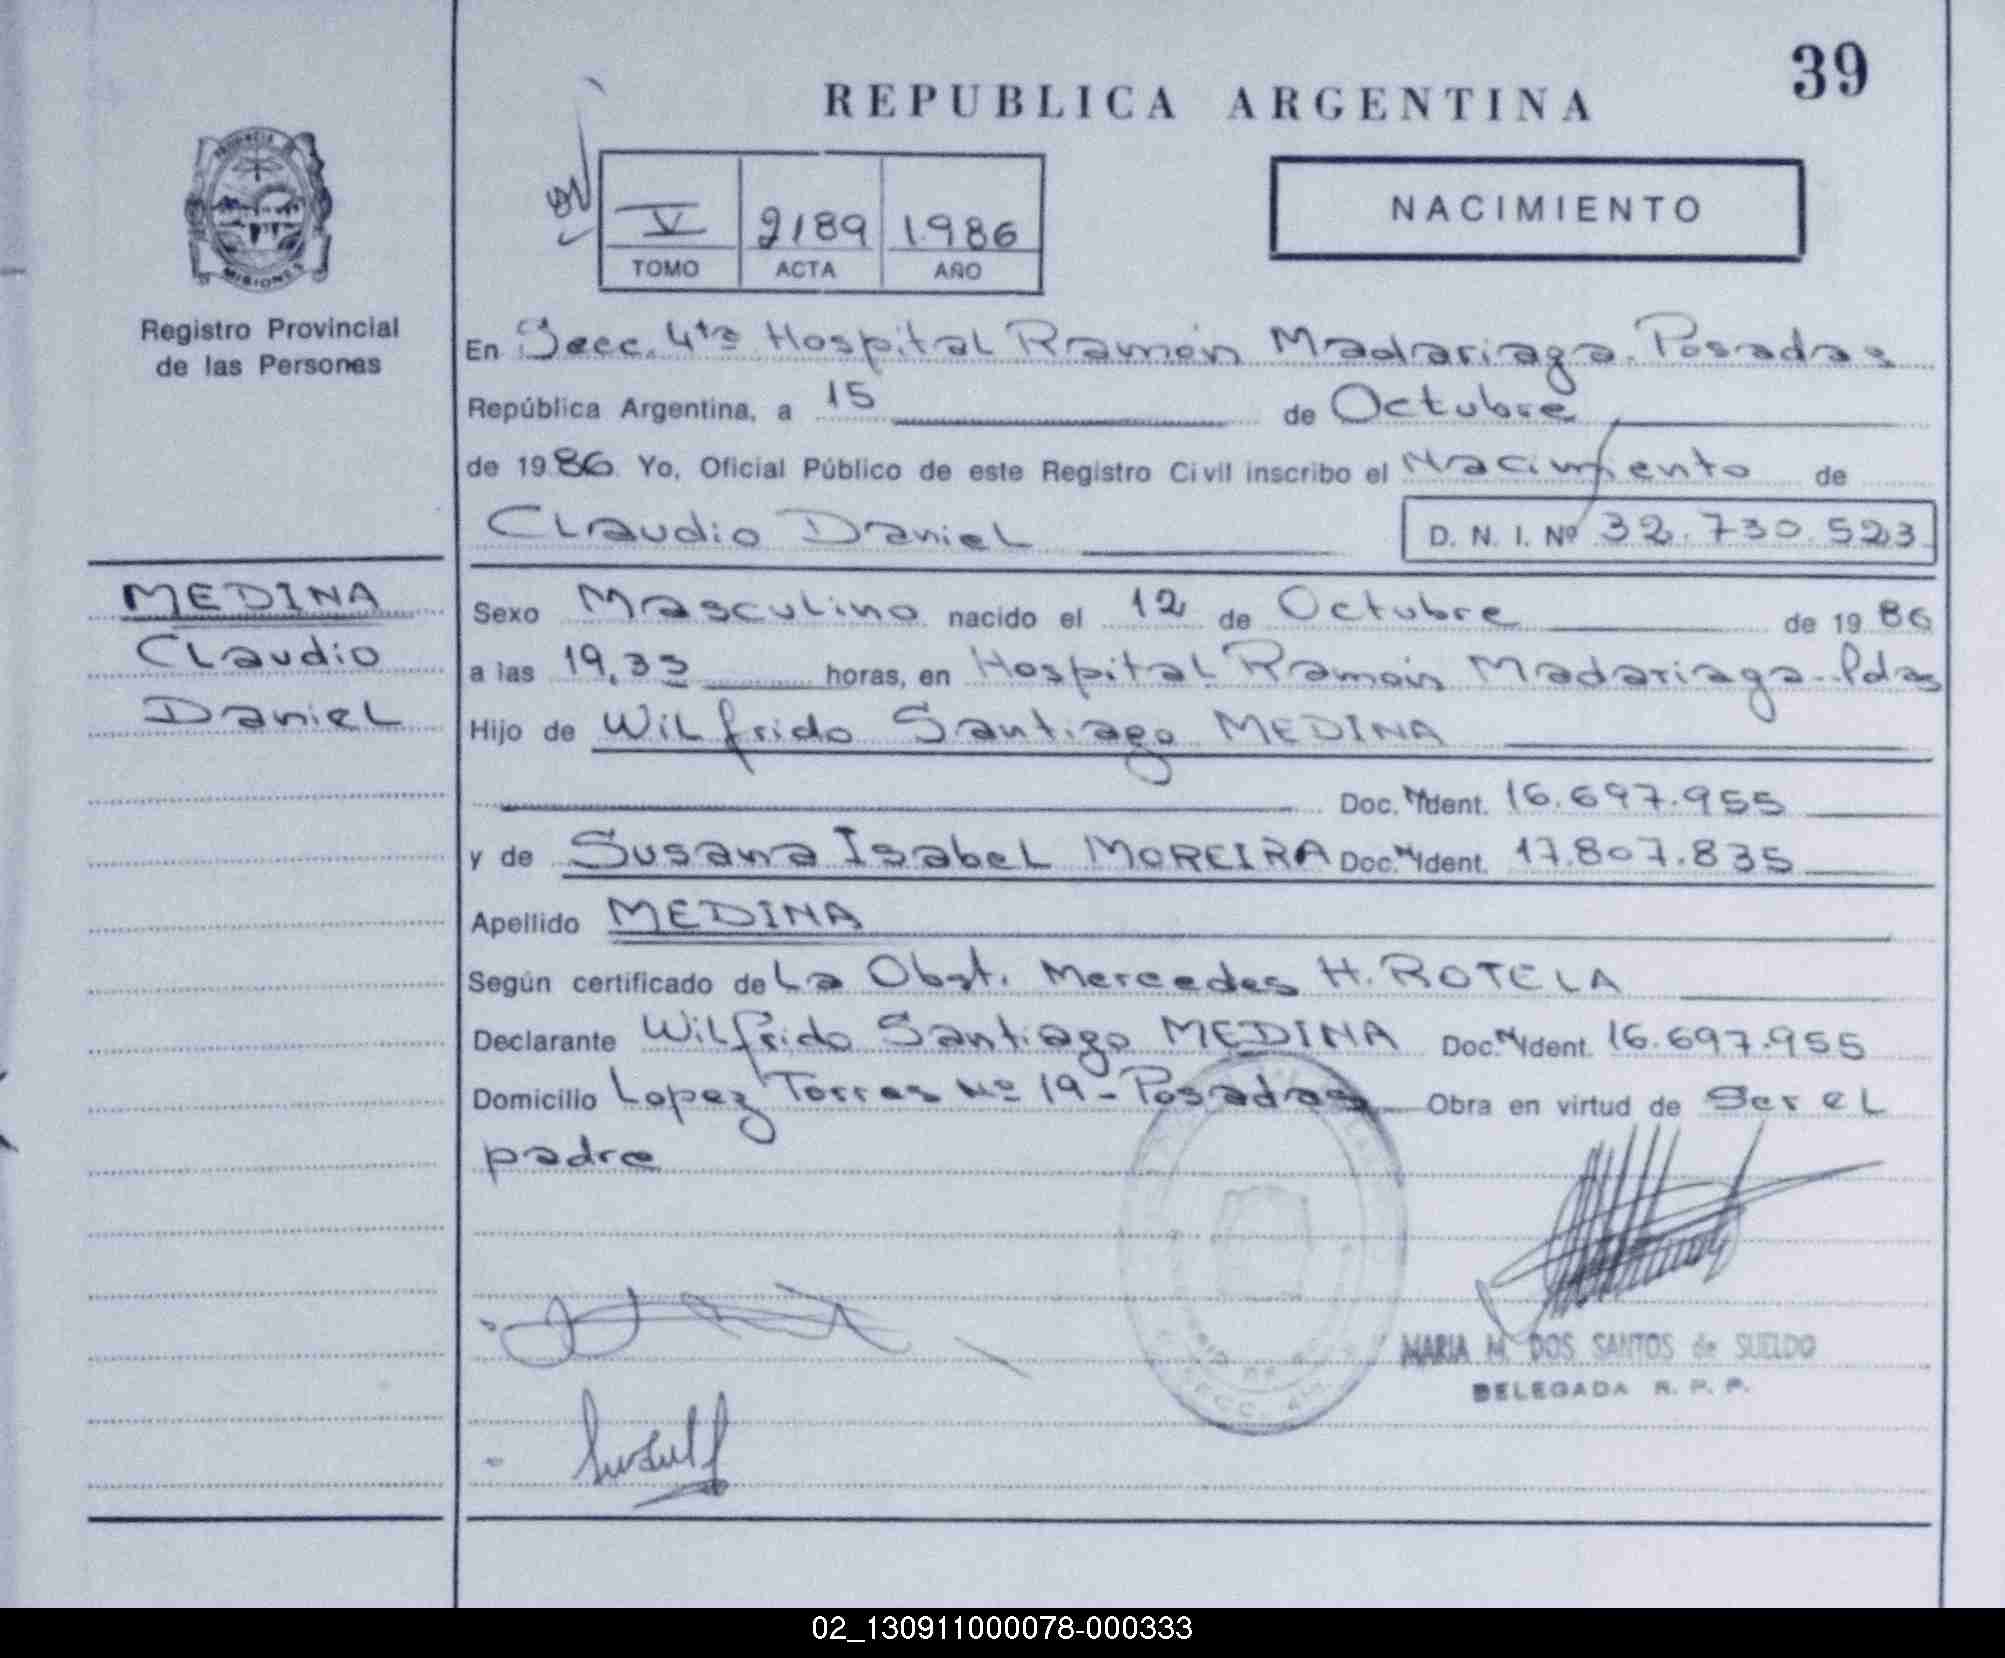 39
REPUBLICA ARGENTINA
PROVINCIA DE
MISIONES
Registro Provincial
de las Persones
V 2189 1.986
TOMO ACTA AÑO
NACIMIENTO
En Secc. 4ta Hospital Ramón Madariaga. Posadas
República Argentina, a 15 de Octubre
de 1986 Yo, Oficial Público de este Registro Civil inscribo el Nacimiento de
Claudio Daniel D. N. I. Nº 32.730.523
MEDINA
Claudio
Daniel
Sexo Masculino nacido el 12 de Octubre de 1986
a las 19,33 horas, en Hospital Ramón Madariaga - Pdas
Hijo de Wilfrido Santiago MEDINA
Doc. Ident. 16.697.955
y de Susana Isabel MOREIRA Doc. Ident. 17.807.835
Apellido MEDINA
Según certificado de La Obst. Mercedes H. ROTELA
Declarante Wilfrido Santiago MEDINA Doc. Ident. 16.697.955
Domicilio Lopez Torres Nº 19 - Posadas Obra en virtud de Ser el
padre
SECC. 4ta
MARIA M. DOS SANTOS de SUELDO
DELEGADA R. P. P.
02_130911000078-000333